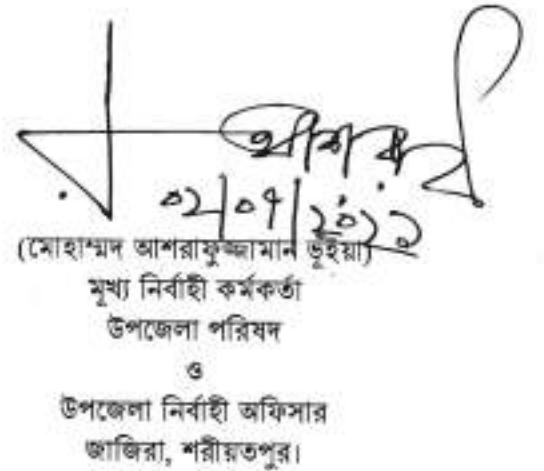 আশরাফ
০২/০৭/২০২১
(মোহাম্মদ আশরাফুজ্জামান ভূঁইয়া)
মূখ্য নির্বাহী কর্মকর্তা
উপজেলা পরিষদ
ও
উপজেলা নির্বাহী অফিসার
জাজিরা, শরীয়তপুর।